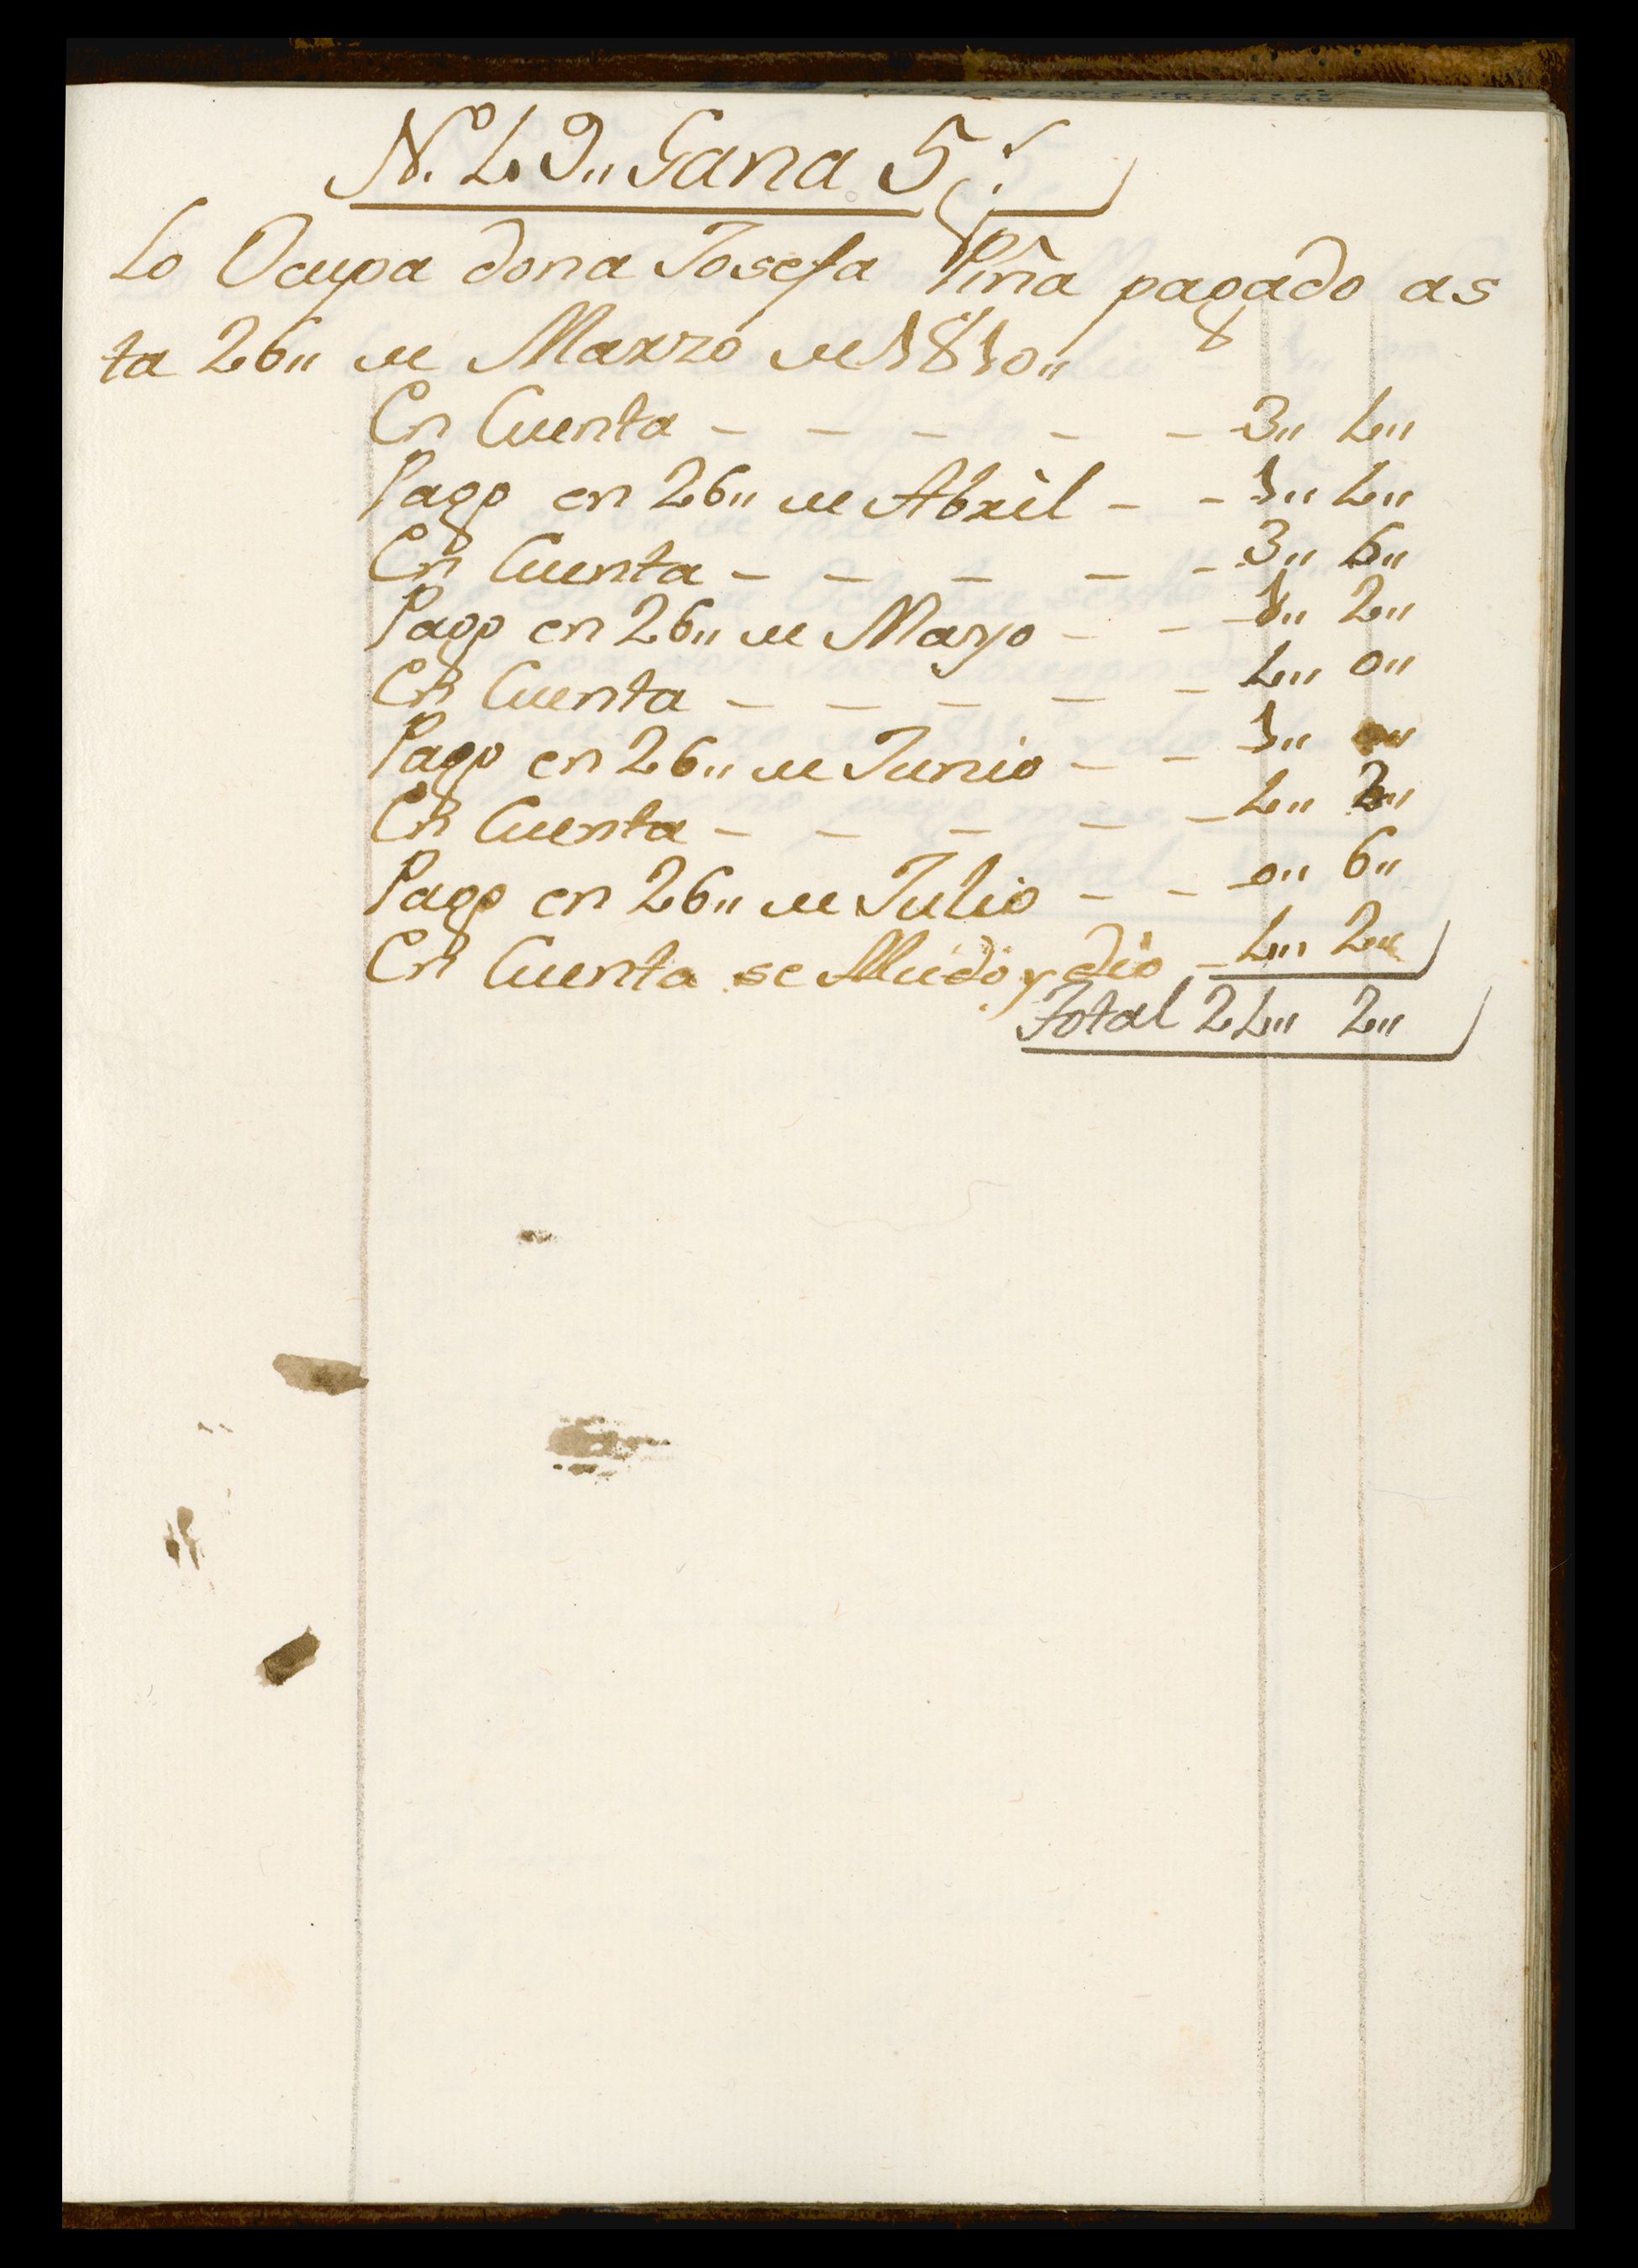 N.º 49,, Gana 5 p.s
Lo Ocupa dona Josefa Piña pagado as
ta 26,, de Marzo de 1810,,
En Cuenta - - - - - 3,, 4,,
Pago en 26,, de Abril - - 1,, 4,,
En Cuenta - - - - - 3,, 6,,
Pago en 26,, de Mayo - - 1,, 2,,
En Cuenta - - - - - 4,, 0,,
Pago en 26,, de Junio - - 1,, 0,,
En Cuenta - - - - - 4,, 2,,
Pago en 26,, de Julio - - 0,, 6,,
En Cuenta se Mudó y dio - 4,, 2,,
Total 24,, 2,,